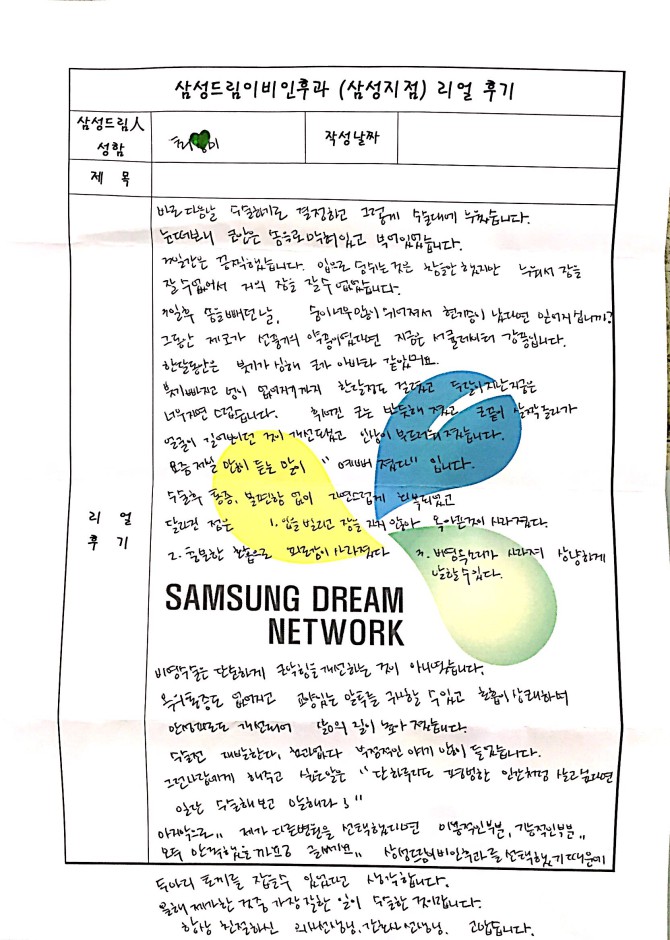 삼성드림이비인후과 (삼성지점) 리얼 후기
삼성드림人
성함
작성날짜
제 목
리 얼
후 기
바로 다음날 수술하기로 결정하고 그렇게 수술대에 누웠습니다.
눈떠보니 코안은 솜으로 막혀있고 부어있었습니다.
끔찍했습니다. 입으로 숨쉬는것은 참을만 했지만 누워서 잠을
잘수없어서 거의 잠을 잘수 없었습니다.
솜을 빼던 날, 숨이 너무 많이 쉬어져서 현기증이 났다면 믿어지십니까?
그동안 제코가 선풍기의 약풍이었다면 지금은 서큘레이터 강풍입니다.
한달동안은 붓기가 심해 코가 아바타 같았어요.
붓기빠지고 멍이 없어지기까지 한달정도 걸렸고 두달이지난지금은
너무자연스럽습니다. 휘어진 코는 반듯해졌고 코끝이 살짝 올라가
얼굴이 길어보이던 것이 개선되었고 인상이 부드러워졌습니다.
요즘 제일 많이 듣는 말이 " 예뻐 졌다" 입니다.
수술후 통증, 불편함 없이 자연스럽게 회복되었고
달라진 점은 1. 입을 벌리고 잠을 자지 않아 목아픈것이 사라졌다.
2. 충분한 호흡으로 피로감이 사라졌다 3. 비염목소리가 사라져 상냥하게
말할수있다.
SAMSUNG DREAM
NETWORK
비염수술은 단순하게 코막힘을 개선하는 것이 아니었습니다.
없어지고 교양있는 말투를 구사할 수있고 호흡이 상쾌하며
만성피로도 개선되어 삶의 질이 높아 졌습니다.
수술전 재발한다, 효과없다 부정적인 얘기 많이 들었습니다.
그런사람에게 해주고 싶은말은 " 단 하루라도 평범한 인간처럼 살고싶다면
일단 수술해보고 말해라 "
마지막으로 제가 다른병원을 선택했다면 미용적인부분, 기능적인부분
모두 만족했을까요? 글쎄요 삼성드림이비인후과를 선택했기때문에
두마리 토끼를 잡을수 있었다고 생각합니다.
올해 제가한 것중 가장 잘한 일이 수술한 것입니다.
항상 친절하신 의사선생님, 간호사선생님, 고맙습니다.